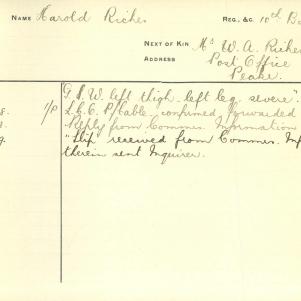 NAME Harold Riches REG. &C. 10th B
NEXT OF KIN Mr W. A. Riches
ADDRESS Post Office
Peake.
G.S.W. left thigh - left leg severe".
8. 1/P L.G.C. P/Cable, confirmed, forwarded
Reply from Commns. Information
9. "Slip" received from Commns. Inf
therein sent Inquirer.